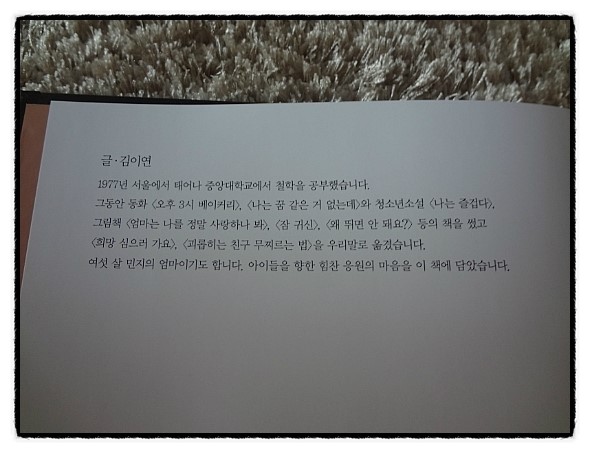 글·김이연
1977년 서울에서 태어나 중앙대학교에서 철학을 공부했습니다.
그동안 동화 〈오후 3시 베이커리〉, 〈나는 꿈 같은 거 없는데〉와 청소년소설 〈나는 즐겁다〉,
그림책 〈엄마는 나를 정말 사랑하나 봐〉, 〈잠 귀신〉, 〈왜 뛰면 안 돼요?〉 등의 책을 썼고
〈희망 심으러 가요〉, 〈괴롭히는 친구 무찌르는 법〉을 우리말로 옮겼습니다.
여섯 살 민지의 엄마이기도 합니다. 아이들을 향한 힘찬 응원의 마음을 이 책에 담았습니다.